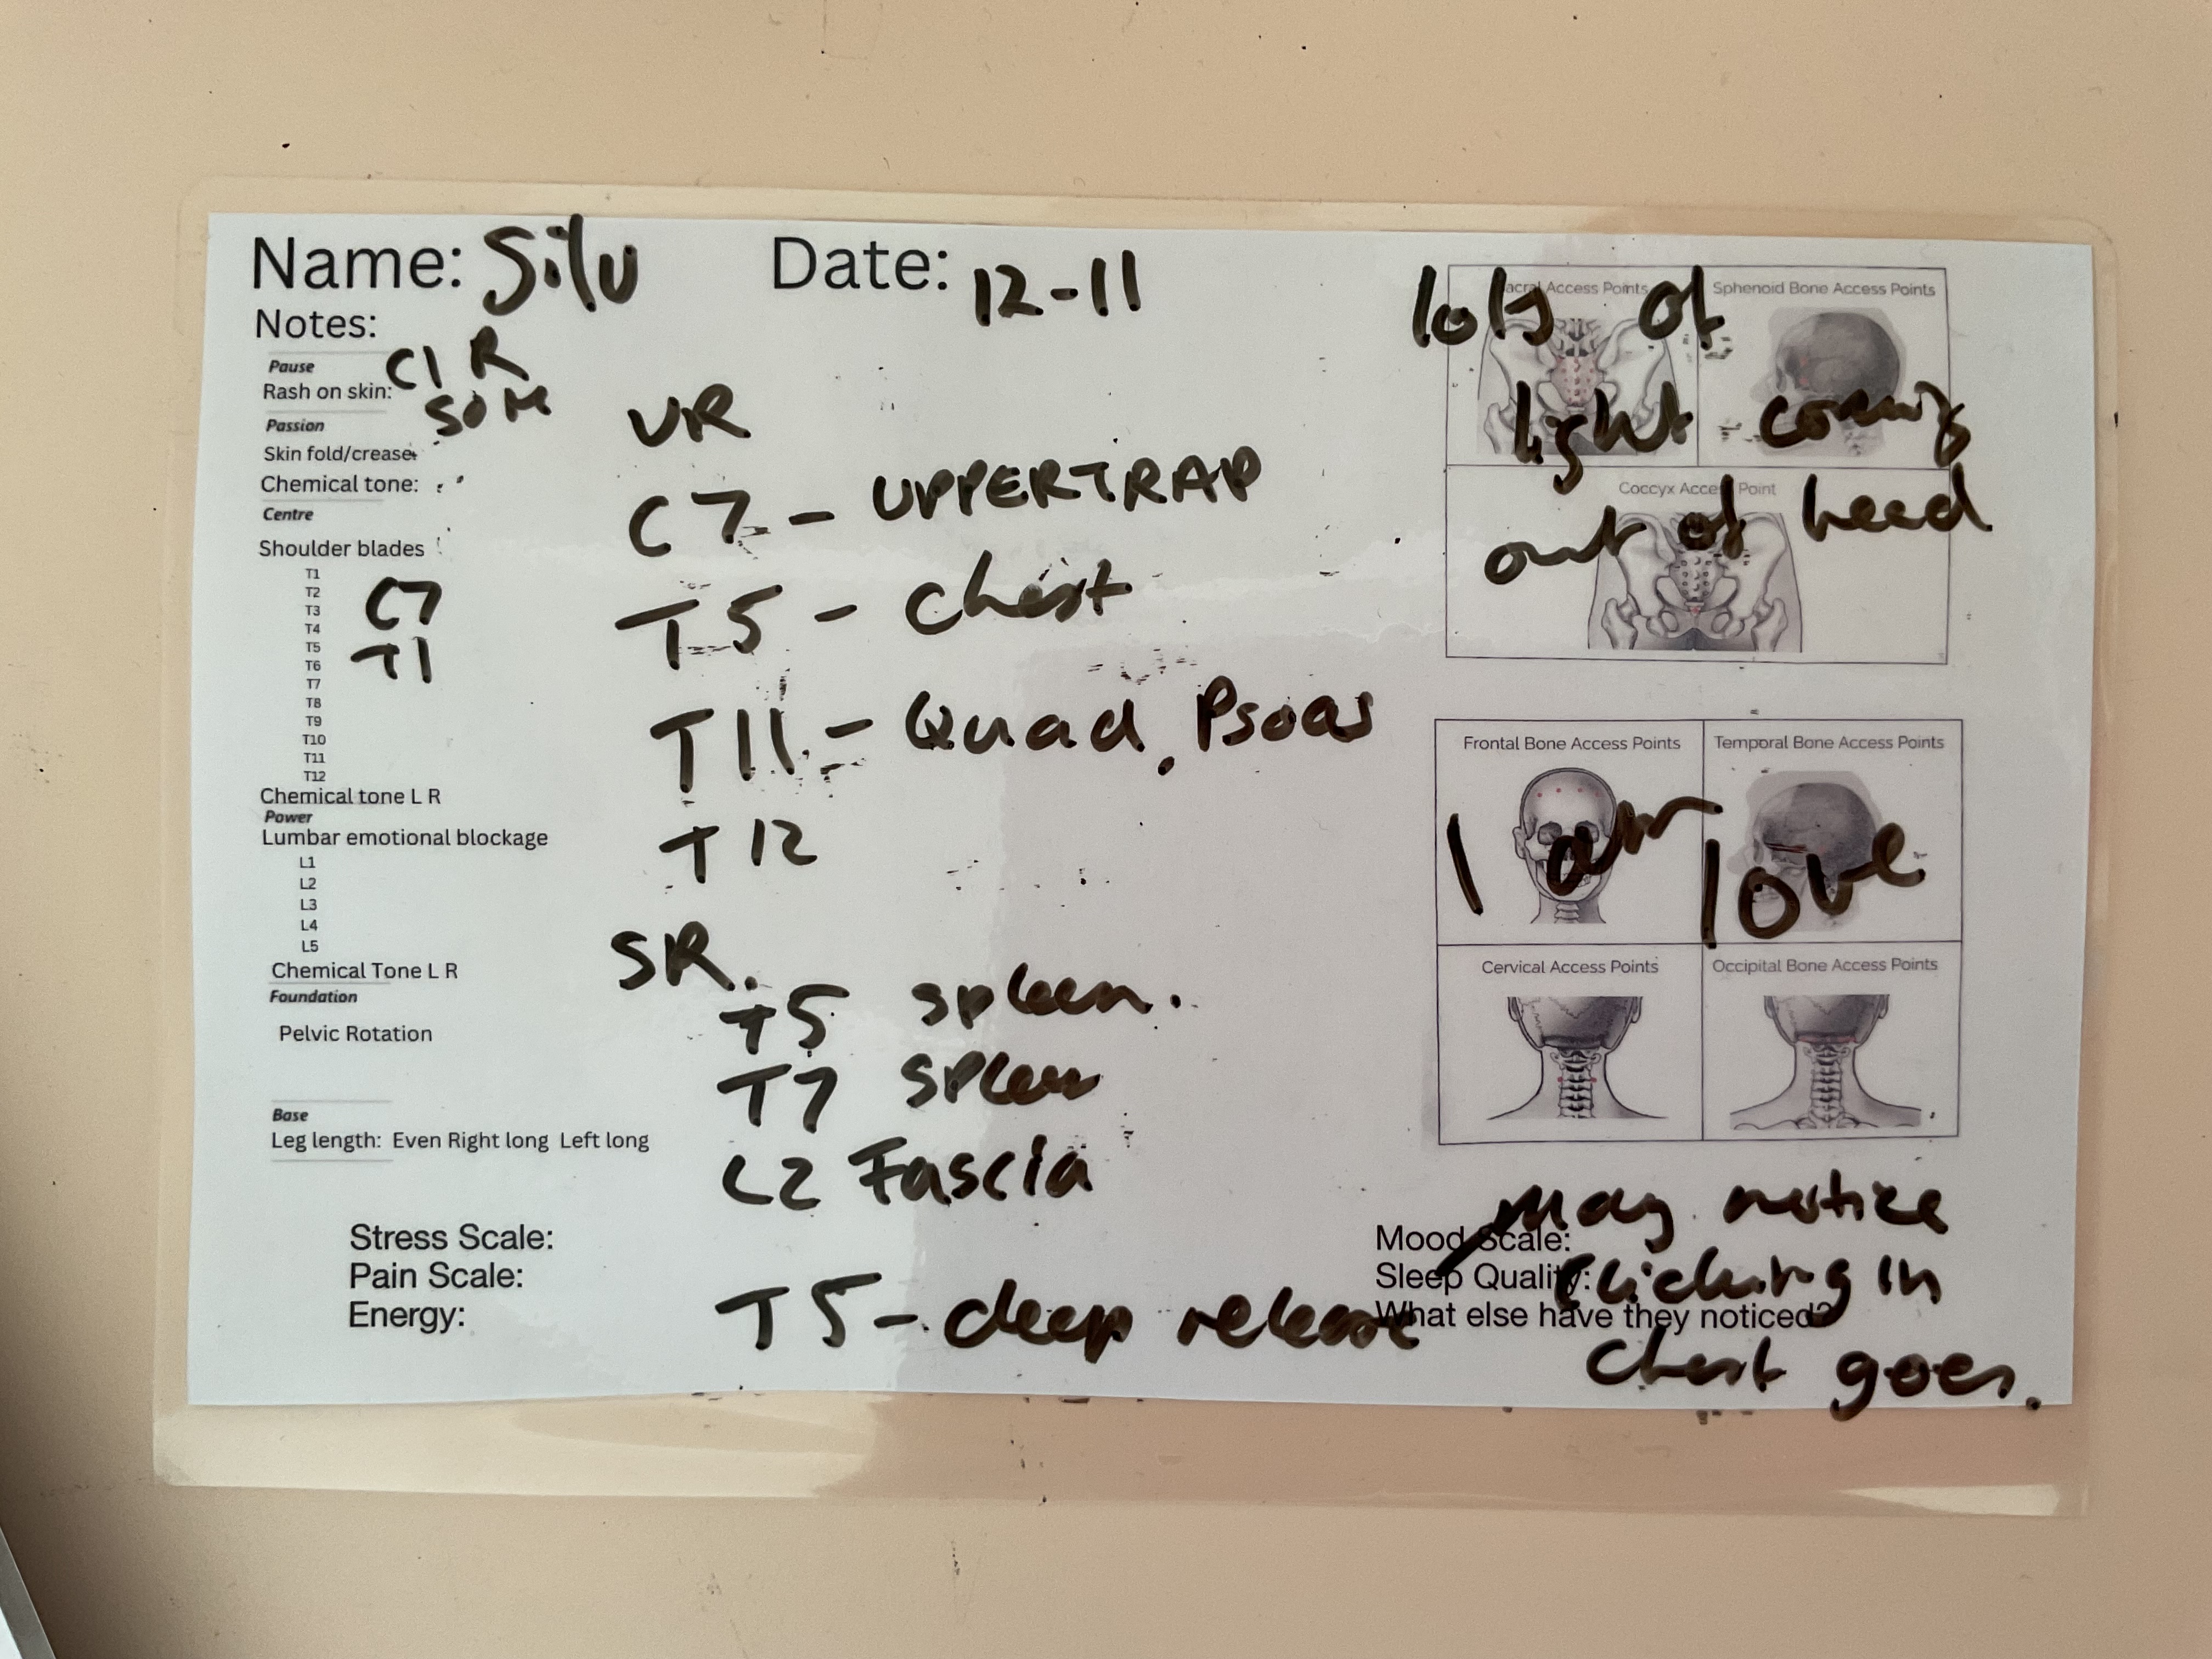 Name: Silu Date: 12-11
Notes:
Pause C1 R
Rash on skin: SOM
Passion
Skin fold/crease:
Chemical tone:
Centre
Shoulder blades
T1
T2
T3
T4
T5
T6
T7
T8
T9
T10
T11
T12
C7
T1
Chemical tone L R
Power
Lumbar emotional blockage
L1
L2
L3
L4
L5
Chemical Tone L R
Foundation
Pelvic Rotation
Base
Leg length: Even Right long Left long
Stress Scale:
Pain Scale:
Energy:
VR
C7 - UPPERTRAP
T5 - chest
T11 - Quad, Psoas
T12
SR.
T5 spleen.
T7 spleen
L2 Fascia
T5 - deep release
Access Points
Sphenoid Bone Access Points
Coccyx Access Point
lots of
light coming
out of head
Frontal Bone Access Points
Temporal Bone Access Points
I am love
Cervical Access Points
Occipital Bone Access Points
Mood Scale:
Sleep Quality:
What else have they noticed?
may notice
clicking in
chest goes.